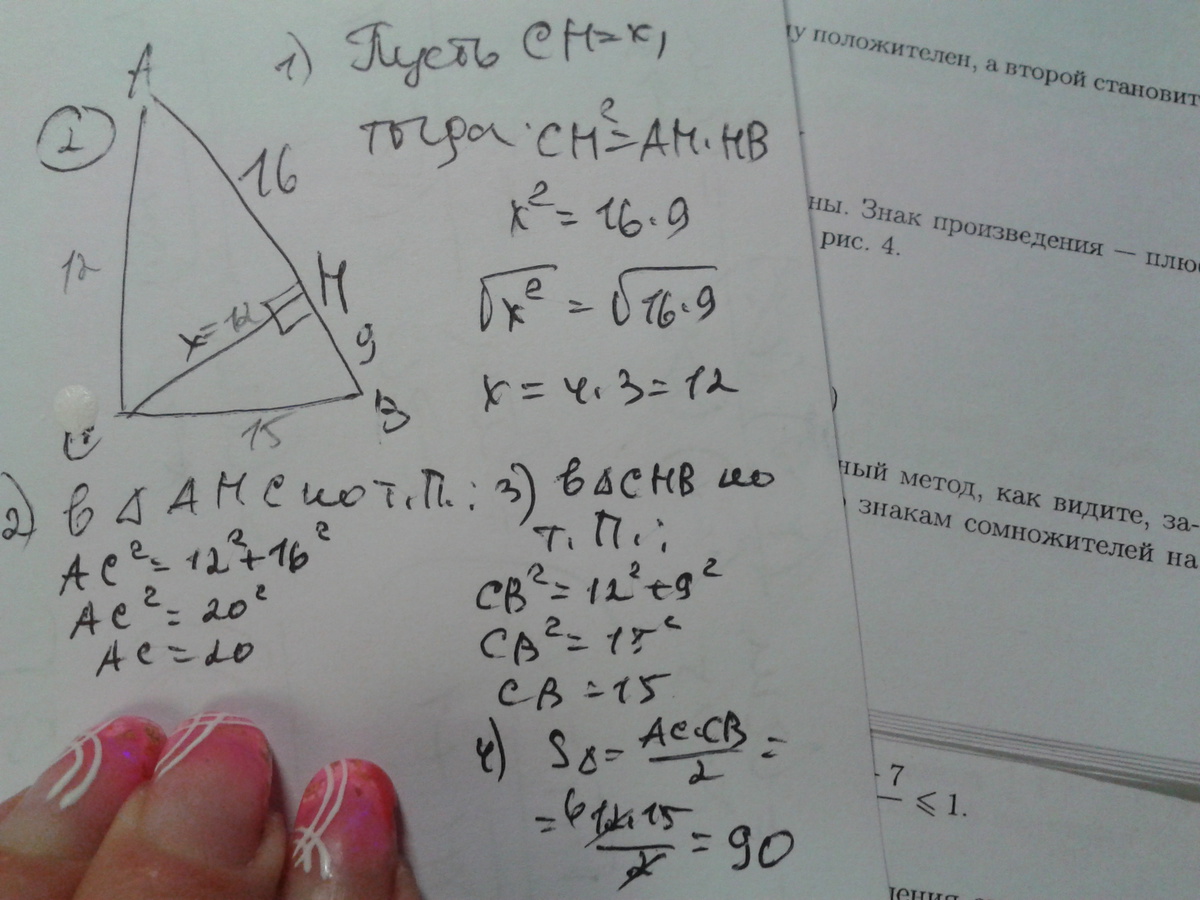 1) Пусть CH=x,
тогда CH²=AH·HB
x² = 16·9
√x² = √16·9
x = 4·3 = 12
1
A
16
12
H
x=12
9
C
15
B
2) в Δ AHC по т.П.:
AC² = 12² + 16²
AC² = 20²
AC = 20
3) в Δ CHB по
т. П.:
CB² = 12² + 9²
CB² = 15²
CB = 15
4) SΔ = AC·CB/2 =
= 6 12·15/2 = 90
му положителен, а второй становит
ны. Знак произведения — плюс
рис. 4.
)
ный метод, как видите, за-
знакам сомножителей на
7
— ⩽ 1.